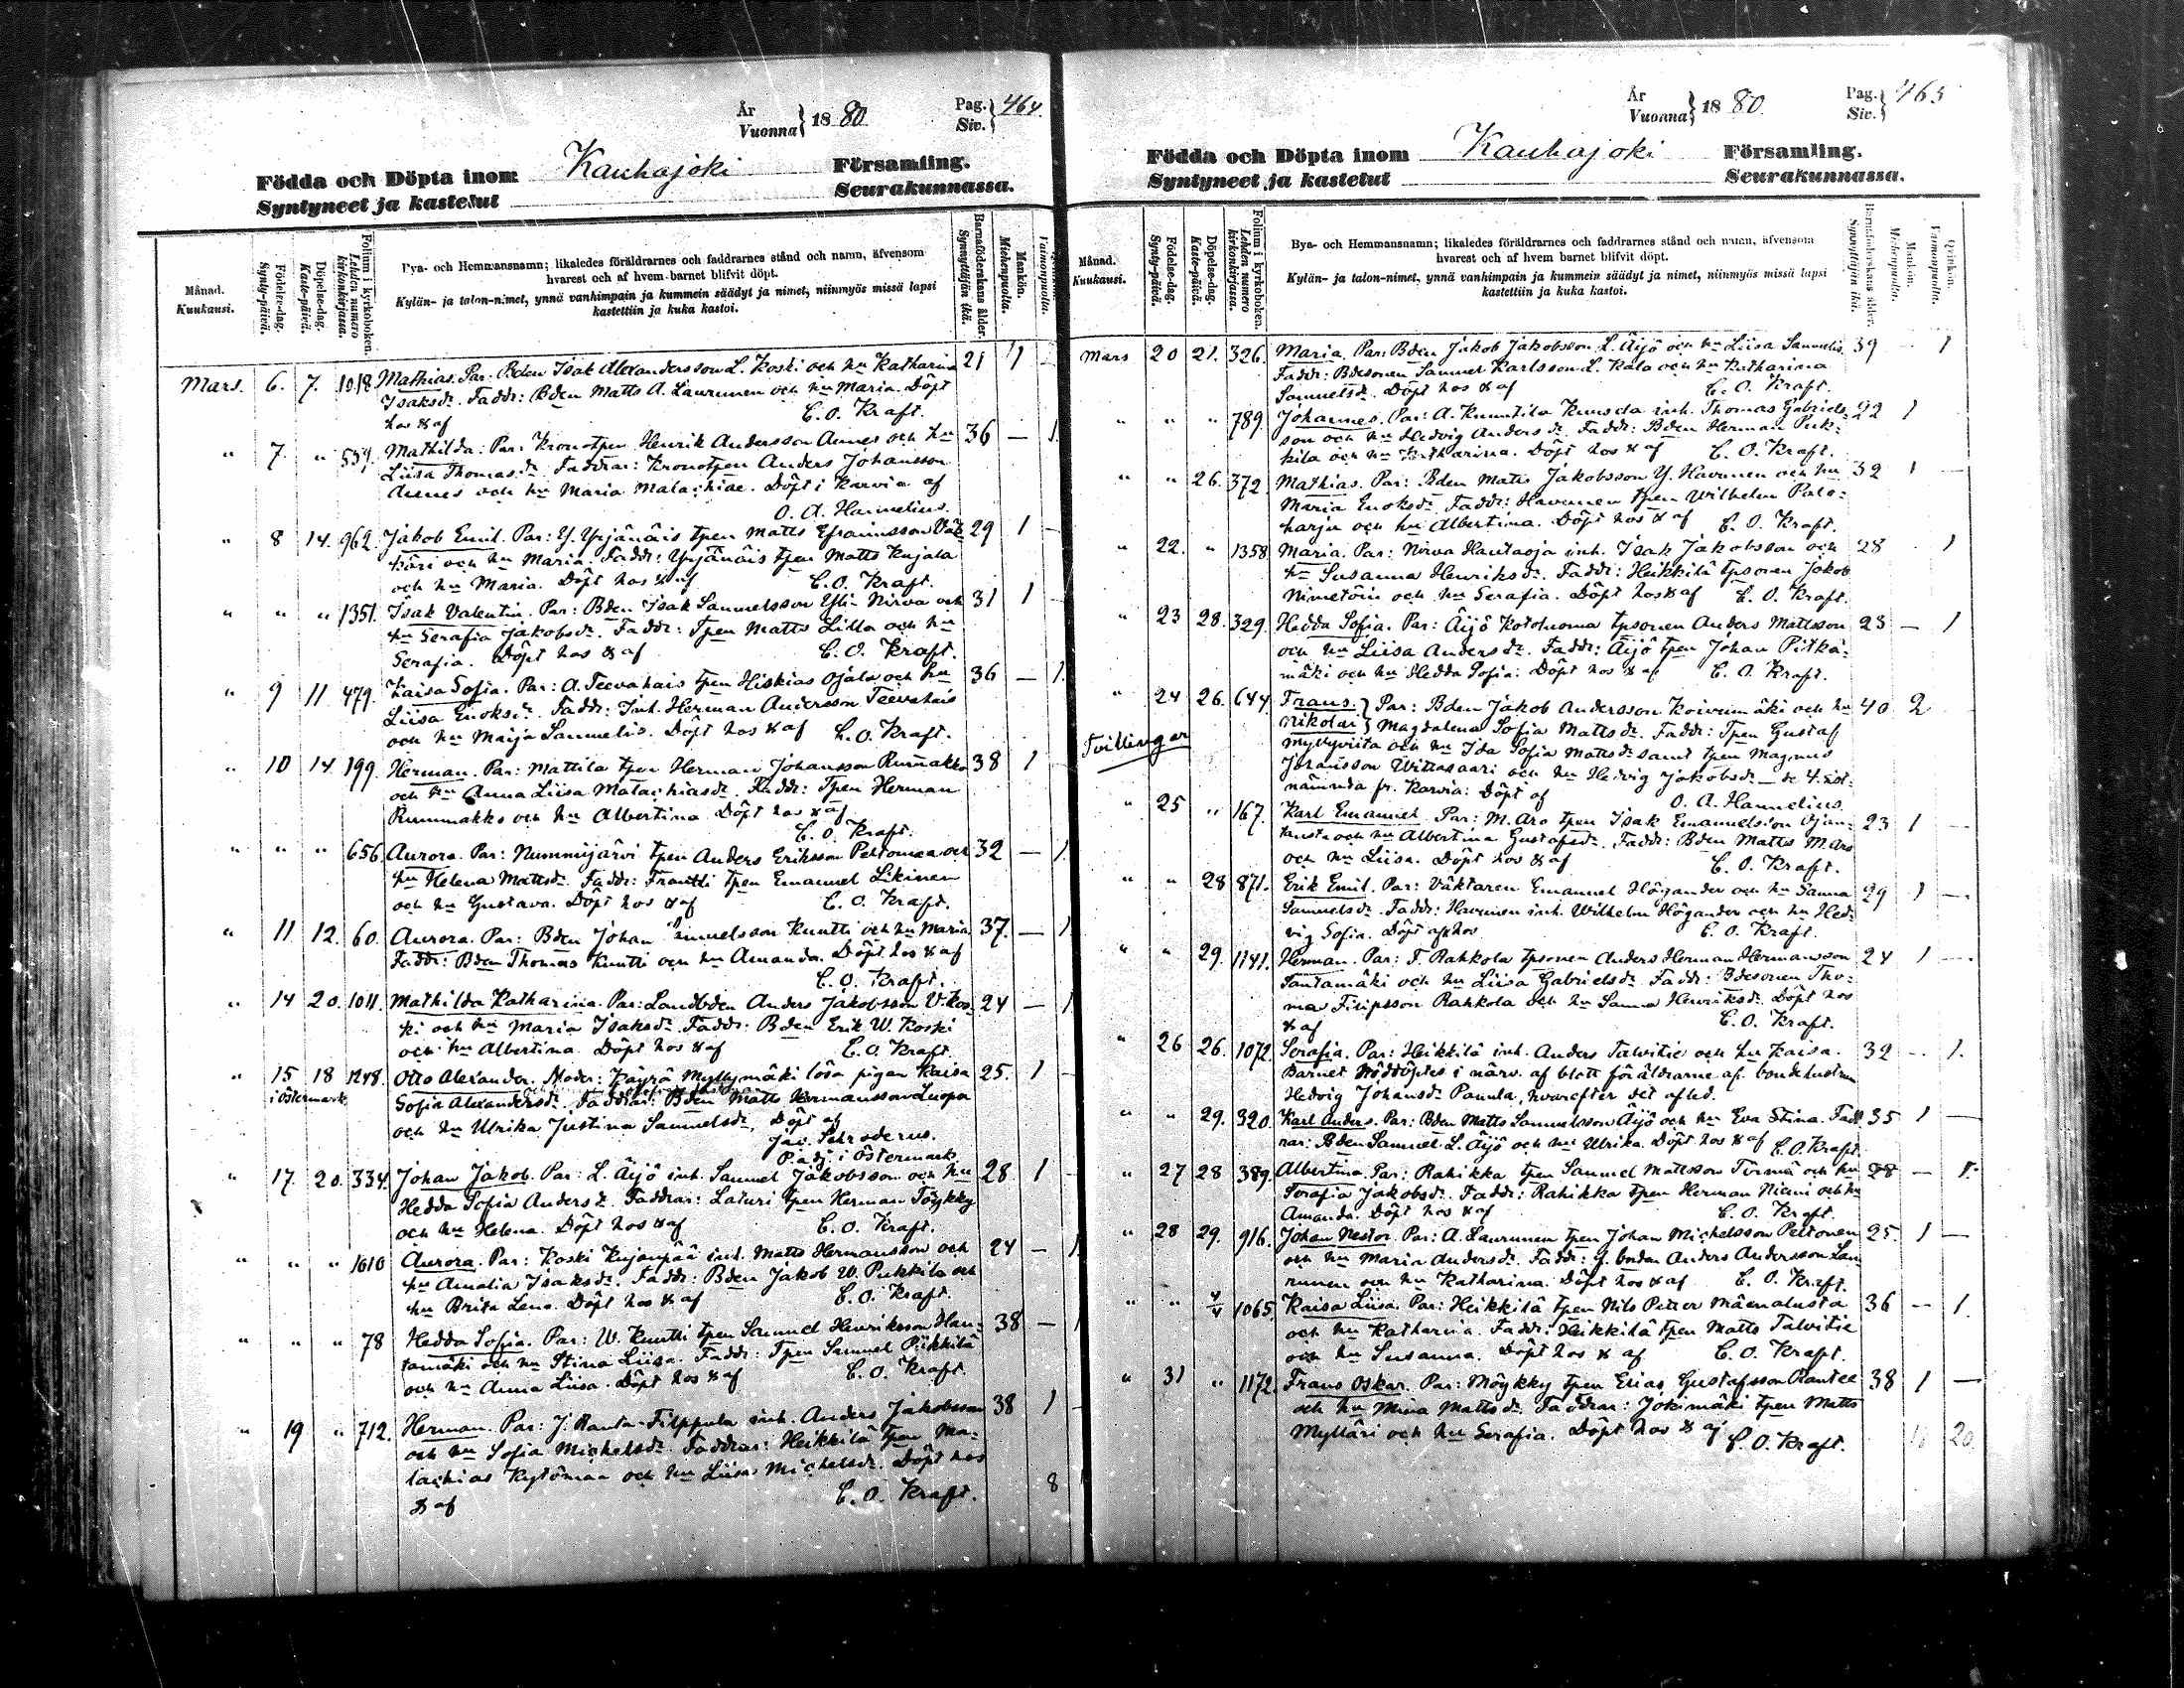 År
Vuonna } 18 80
Pag.
Siv. } 464.
Födda och Döpta inom Kauhajoki Församling.
Syntyneet ja kastetut Seurakunnassa.
Månad.
Kuukausi.
Födelse-dag.
Synty-päivä.
Döpelse-dag.
Kaste-päivä.
Folium i kyrkoboken.
Lehden numero kirkonkirjassa.
Bya- och Hemmansnamn; likaledes föräldrarnes och faddrarnes stånd och namn, äfvensom
hvarest och af hvem barnet blifvit döpt.
Kylän- ja talon-nimet, ynnä vanhimpain ja kummein säädyt ja nimet, niinmyös missä lapsi
kastettiin ja kuka kastoi.
Barnaföderskans ålder.
Synnyttäjän ikä.
Mankön.
Miehenpuolta.
Vaimonpuolta.
Mars. 6. 7. 1018. Mathias. Par: Bden Isak Alexandersson L. Koski och hu Katharina 21 1
Isaksdr. Faddr: Bden Matts A. Laurunen och hu Maria. Döpt
hos & af C. O. Kraft.
" 7. " 539. Mathilda: Par: Kronotpen Henrik Andersson Annes och hu 36 — 1.
Liisa Thomasdr. Faddrar: Kronotpen Anders Johansson
Annes och hu Maria Malachiae. Döpt i Karvia af
O. A. Hannelius.
" 8 14. 962. Jakob Emil. Par: Y. Yrjänäis tpen Matts Efraimsson Väk- 29 1 —
käri och hu Maria. Faddr: Yrjänäis tpen Matts Kujala
och hu Maria. Döpt hos & af C. O. Kraft.
" " " 1351. Isak Valentin. Par: Bden Isak Samuelsson Yli- Nirva och 31 1 —
hu Serafia Jakobsdr. Faddr: Tpen Matts Lilla och hu
Serafia. Döpt hos & af C. O. Kraft.
" 9 11 479. Kaisa Sofia. Par: A. Teevahais tpen Hiskias Ojala och hu 36 — 1.
Liisa Enoksdr. Faddr: Inh. Herman Andersson Teevahais
och hu Maija Samuelis. Döpt hos & af C. O. Kraft.
" 10 14 199. Herman. Par: Mattila tpen Herman Johansson Rummakko 38 1
och hu Anna Liisa Malachiasdr. Faddr: Tpen Herman
Rummakko och hu Albertina. Döpt hos & af
C. O. Kraft.
" " " 656. Aurora. Par: Nummijärvi tpen Anders Eriksson Peltomaa och 32 — 1.
hu Helena Mattsdr. Faddr: Frantti tpen Emanuel Likinen
och hu Gustava. Döpt hos & af C. O. Kraft.
" 11 12. 60. Aurora. Par: Bden Johan Emuelsson Kuntti och hu Maria. 37. — 1
Faddr: Bden Thomas Kuntti och hu Amanda. Döpt hos & af
C. O. Kraft.
" 14 20. 1011. Mathilda Katharina. Par: Landbden Anders Jakobsson V. Kos- 24 — 1
ki och hu Maria Isaksdr. Faddr: Bden Erik W. Koski
och hu Albertina. Döpt hos & af C. O. Kraft.
" 15 18 1248. Otto Alexander. Moder: Käyrä Myllymäki lösa pigan Kaisa 25. 1 —
i Östermark Sofia Alexandersdr. Faddrar: Bden Matts Hermansson Luopa
och hu Ulrika Justina Samuelsdr. Döpt af
Jac. Schroderus.
P. adj. i Östermark.
" 17. 20. 334. Johan Jakob. Par: L. Äijö inh. Samuel Jakobsson och hu 28. 1 —
Hedda Sofia Andersdr. Faddrar: Laturi tpen Herman Töykky
och hu Helena. Döpt hos & af C. O. Kraft.
" " " 1010 Aurora. Par: Koski Kujanpää inh. Matts Hermansson och 24 — 1.
hu Amalia Isaksdr. Faddr: Bden Jakob W. Pukkila och
hu Brita Lena. Döpt hos & af C. O. Kraft.
" " " 78 Hedda Sofia. Par: W. Kuntti tpen Samuel Henriksson Han- 38 — 1
tamäki och hu Stina Liisa. Faddr: Tpen Samuel Pükkilä
och hu Anna Liisa. Döpt hos & af C. O. Kraft.
" 19 " 712. Herman. Par: J. Ranta-Filppula inh. Anders Jakobsson 38 1 —
och hu Sofia Michelsdr. Faddrar: Heikkilä tpen Ma-
lachias Kytömaa och hu Liisa Michelsdr. Döpt hos
& af C. O. Kraft. 8
År
Vuonna } 18 80.
Pag.
Siv. } 465
Födda och Döpta inom Kauhajoki Församling.
Syntyneet ja kastetut Seurakunnassa.
Månad.
Kuukausi.
Födelse-dag.
Synty-päivä.
Döpelse-dag.
Kaste-päivä.
Folium i kyrkoboken.
Lehden numero kirkonkirjassa.
Bya- och Hemmansnamn; likaledes föräldrarnes och faddrarnes stånd och namn, äfvensom
hvarest och af hvem barnet blifvit döpt.
Kylän- ja talon-nimet, ynnä vanhimpain ja kummein säädyt ja nimet, niinmyös missä lapsi
kastettiin ja kuka kastoi.
Barnaföderskans ålder.
Synnyttäjän ikä.
Mankön.
Miehenpuolta.
Qvinkön.
Vaimonpuolta.
Mars 20 21. 326. Maria. Par: Bden Jakob Jakobsson L. Äijö och hu Liisa Samuelis. 39 — 1
Faddr: Bdesonen Samuel Karlsson L. Kala och hu Katharina
Samuelsdr. Döpt hos & af C. O. Kraft.
" " " 789. Johannes. Par: A. Knuutila inh. Thomas Gabriels- 22 1
son och hu Hedvig Andersdr. Faddr: Bden Herman Puk-
kila och hu Katharina. Döpt hos & af C. O. Kraft.
" " 26. 372. Mathias. Par: Bden Matts Jakobsson Y. Havunen och hu 32 1 —
Maria Enoksdr. Faddr: Havunen tpen Wilhelm Palo-
harju och hu Albertina. Döpt hos & af C. O. Kraft.
" 22. " 1358. Maria. Par: Nirva Hautaoja inh. Isak Jakobsson och 28 1
hu Susanna Henriksdr. Faddr: Heikkilä tpsonen Jakob
Nimetöin och hu Serafia. Döpt hos & af C. O. Kraft.
" 23 28. 329. Hedda Sofia. Par: Äijö Kotoluoma tpsonen Anders Mattsson 23 — 1
och hu Liisa Andersdr. Faddr: Äijö tpen Johan Pitkä-
mäki och hu Hedda Sofia. Döpt hos & af C. O. Kraft.
" 24 26. 644. Frans. } Par: Bden Jakob Andersson Koivumäki och hu 40. 2
Tvillingar Nikolai } Magdalena Sofia Mattsdr. Faddr: Tpen Gustaf
Myllyviita och hu Ida Sofia Mattsdr samt tpen Magnus
Johansson Wittasaari och hu Hedvig Jakobsdr — de 4 sist-
nämnda fr. Karvia: Döpt af O. A. Hannelius.
" 25 " 167. Karl Emanuel. Par: M. Aro tpen Isak Emanuelsson Ojan- 23 1 —
tausta och hu Albertina Gustafsdr. Faddr: Bden Matts M. Aro
och hu Liisa. Döpt hos & af C. O. Kraft.
" " 28 871. Erik Emil. Par: Väktaren Emanuel Högander och hu Sanna 29 1 —
Samuelsdr. Faddr: Havunen inh. Wilhelm Högander och hu Hed-
vig Sofia. Döpt af & hos C. O. Kraft.
" " 29. 1141. Herman. Par: T. Rahkola tpsonen Anders Herman Hermansson 24 1 —
Santamäki och hu Liisa Gabrielsdr. Faddr: Bdesonen Tho-
mas Filipsson Rahkola och hu Sanna Henriksdr. Döpt hos
& af C. O. Kraft.
" 26 26. 1072. Serafia. Par: Heikkilä inh. Anders Talvitie och hu Kaisa. 32 — 1.
Barnet Nöddöptes i närv. af blott föräldrarne af bondehustrun
Hedvig Johansdr Panula, hvarefter det afled.
" " 29. 320. Karl Anders. Par: Bden Matts Samuelsson Äijö och hu Eva Stina. Fadd- 35 1 —
rar: Bden Samuel L. Äijö och hu Ulrika. Döpt hos & af C. O. Kraft.
" 27 28 389. Albertina. Par: Rahikka tpen Samuel Mattsson Tirmä och hu 28 — 1.
Serafia Jakobsdr. Faddr: Rahikka tpen Herman Niemi och hu
Amanda. Döpt hos & af C. O. Kraft.
" 28 29. 916. Johan Nestor. Par: A. Laurunen tpen Johan Michelsson Peltonen 25. 1 —
och hu Maria Andersdr. Faddr: Y. bonden Anders Andersson Lau-
runen och hu Katharina. Döpt hos & af C. O. Kraft.
" " 4/4 1065. Kaisa Liisa. Par: Heikkilä tpen Nils Petter Mäenalusta 36 — 1.
och hu Katharina. Faddr: Heikkilä tpen Matts Talvitie
och hu Susanna. Döpt hos & af C. O. Kraft.
" 31 " 1172. Frans Oskar. Par: Möykky tpen Elias Gustafsson Rantee 38 1 —
och hu Mina Mattsdr. Faddrar: Jokimäki tpen Matts
Mylläri och hu Serafia. Döpt hos & af C. O. Kraft. 18 20.